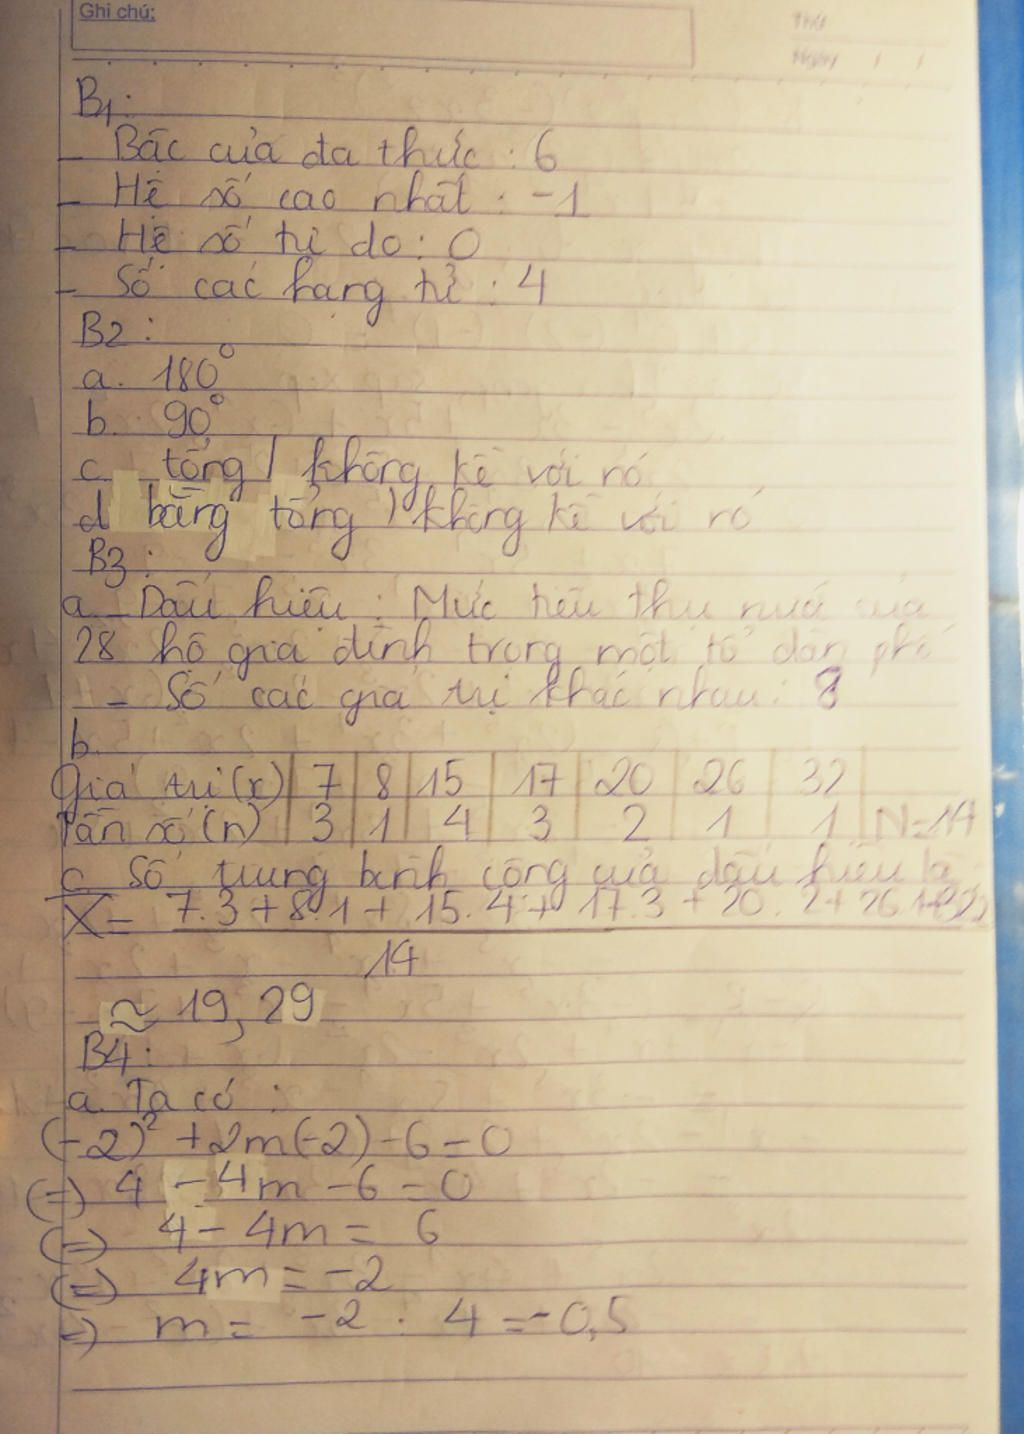 Ghi chú:
Thứ
Ngày
B1:
- Bậc của đa thức: 6
- Hệ số cao nhất: -1
- Hệ số tự do: 0
- Số các hạng tử: 4
B2:
a. 180°
b. 90°
c. tổng / không kề với nó
d bằng tổng / không kề với nó
B3:
a. Dấu hiệu: Mức tiêu thụ nước của
28 hộ gia đình trong một tổ dân phố
- Số các giá trị khác nhau: 8
b.
Giá trị (x) 7 8 15 17 20 26 32
Tần số (n) 3 1 4 3 2 1 1 N=14
c. Số trung bình cộng của dấu hiệu là
X = 7.3 + 8.1 + 15.4 + 17.3 + 20.2 + 26.1 +
14
≈ 19,29
B4:
a. Ta có:
(-2)² + 2m(-2) - 6 = 0
(=) 4 - 4m - 6 = 0
(=) 4 - 4m = 6
(=) 4m = -2
=) m = -2 : 4 = -0,5